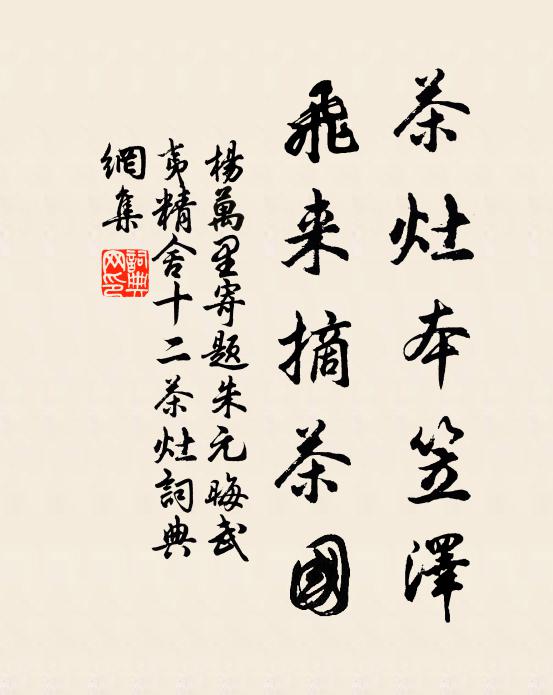 茶灶本笠澤
飛来摘茶國
楊萬里寄題朱元晦武
夷精舍十二茶灶詞典
網集
詞典
网印